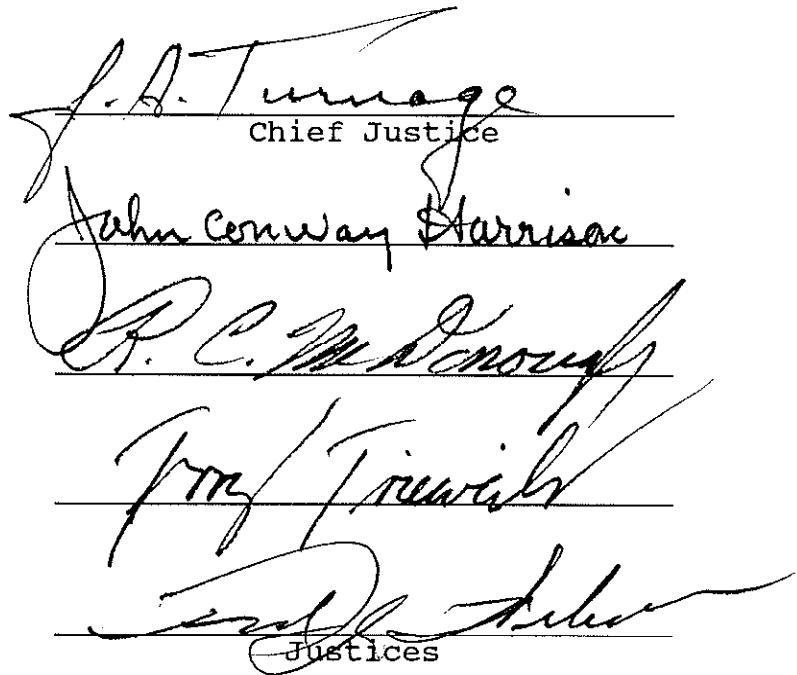 J. A. Turnage
Chief Justice
John Conway Harrison
R. C. McDonough
Terry Trieweiler
Justices